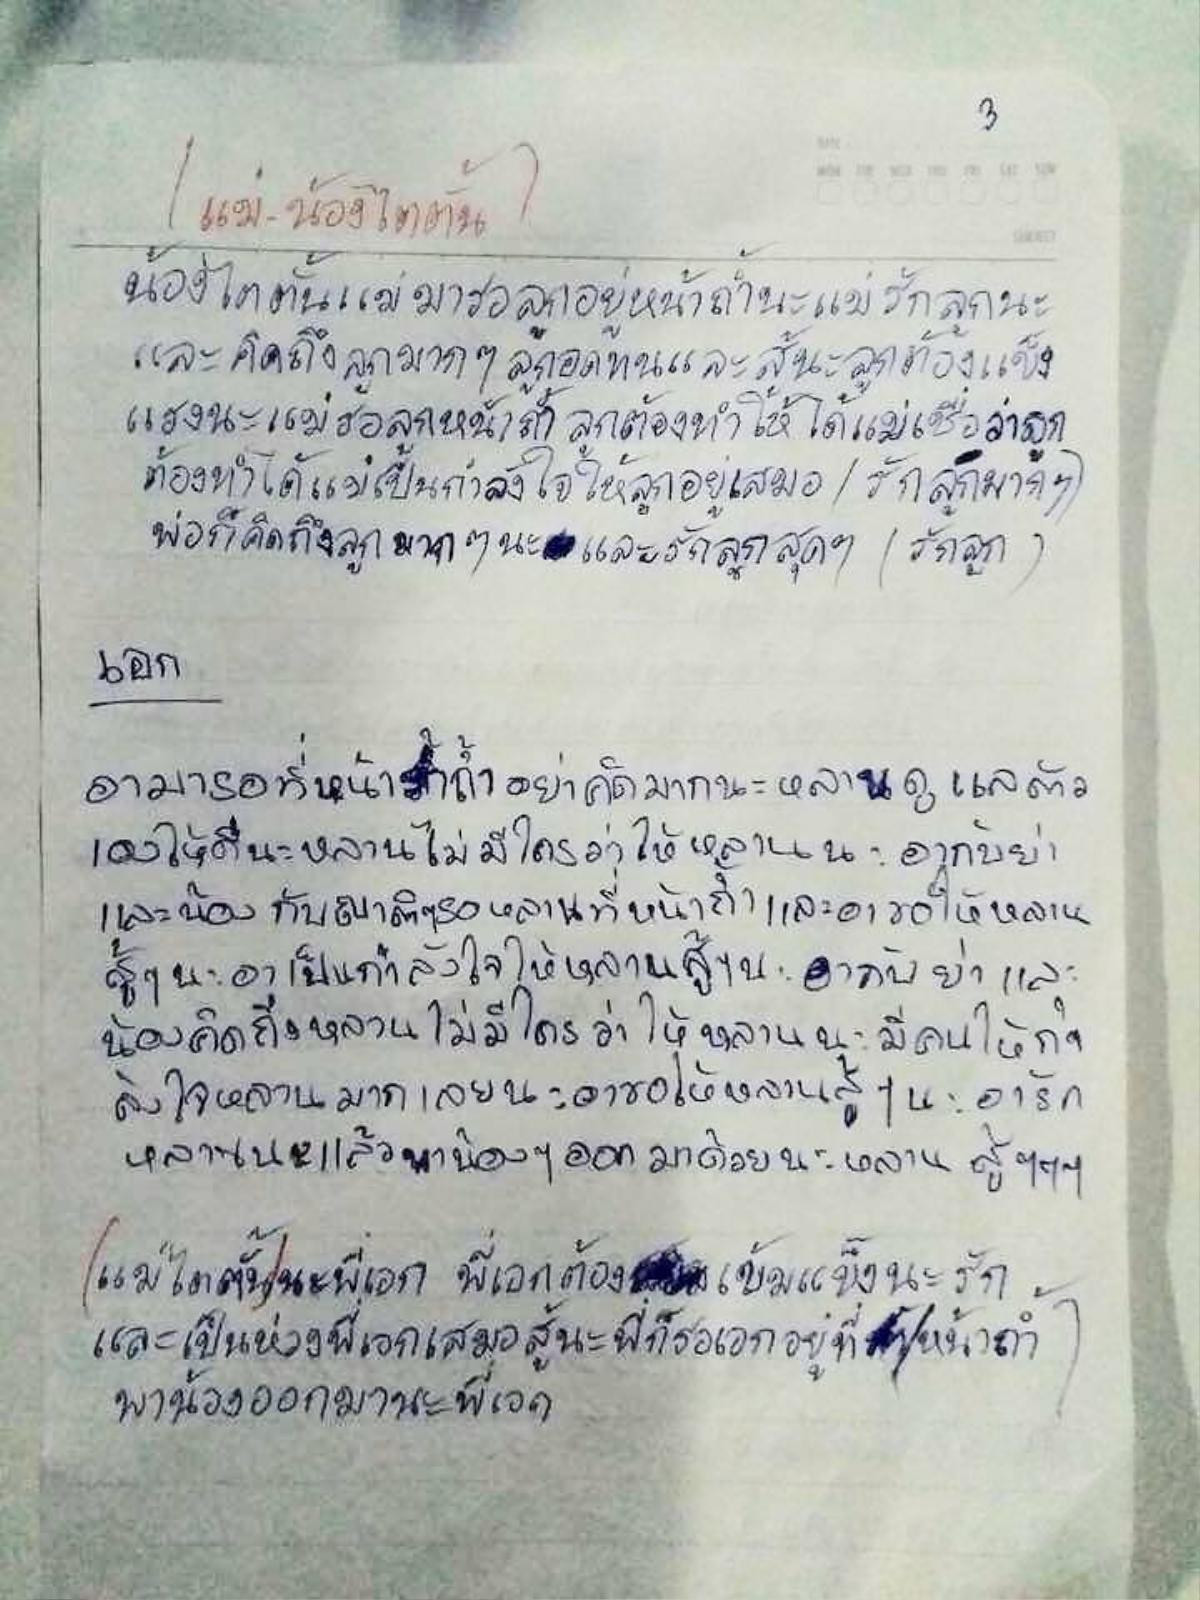 3
(แม่-น้องไตตั้น)
น้องไตตั้นแม่มารอลูกอยู่หน้าถ้ำนะแม่รักลูกนะ
และคิดถึงลูกมากๆลูกอดทนและสู้นะลูกต้องแข็ง
แรงนะแม่รอลูกหน้าถ้ำ ลูกต้องทำให้ได้แม่เชื่อว่าลูก
ต้องทำได้แม่เป็นกำลังใจให้ลูกอยู่เสมอ (รักลูกมากๆ)
พ่อก็คิดถึงลูกมากๆนะ และรักลูกสุดๆ (รักลูก)
เอก
อามารอที่หน้า ถ้ำ อย่าคิดมากนะ หลานดูแลตัว
เองให้ดีนะหลานไม่มีใครว่าให้หลานนะ อากับย่า
และน้อง กับญาติๆรอหลานที่หน้าถ้ำและอาขอให้หลาน
สู้ๆนะ อาเป็นกำลังใจให้หลานสู้ๆนะ อากับย่า และ
น้องคิดถึงหลานไม่มีใครว่าให้หลานนะ มีคนให้กำ
ลังใจหลานมากเลยนะ อาขอให้หลานสู้ๆนะ อารัก
หลานนะแล้วพาน้องๆออกมาด้วยนะหลาน สู้ๆๆๆ
(แม่ไตตั้น)นะพี่เอก พี่เอกต้อง เข้มแข็งนะรัก
และเป็นห่วงพี่เอกเสมอสู้นะพี่ก็รอเอกอยู่ที่ หน้าถ้ำ)
พาน้องออกมานะพี่เอก